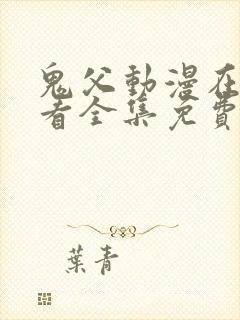 鬼父動漫在
看全集免費
葉青